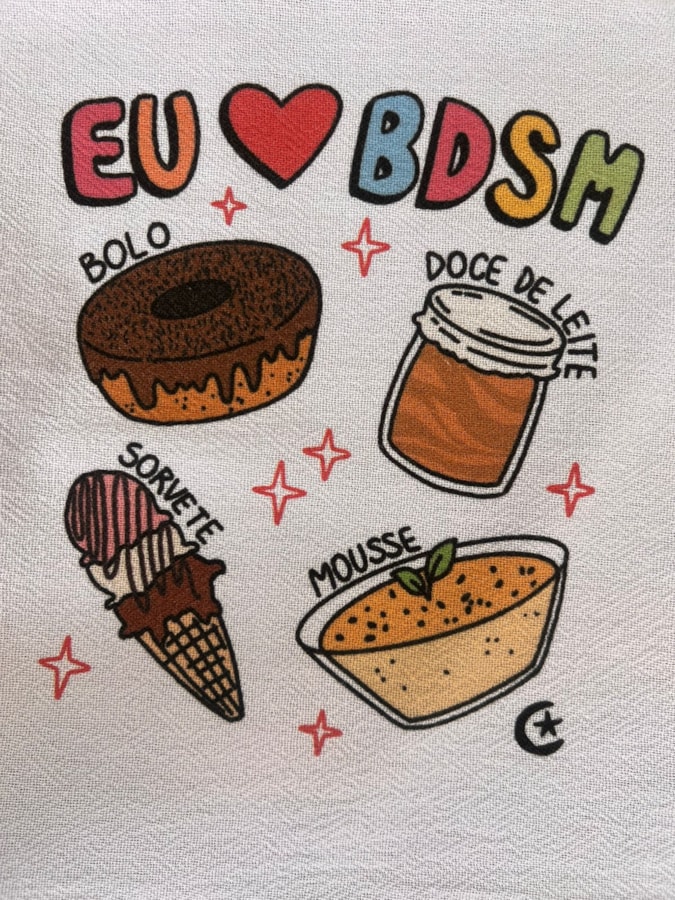 EU ❤ BDSM
BOLO
DOCE DE LEITE
SORVETE
MOUSSE